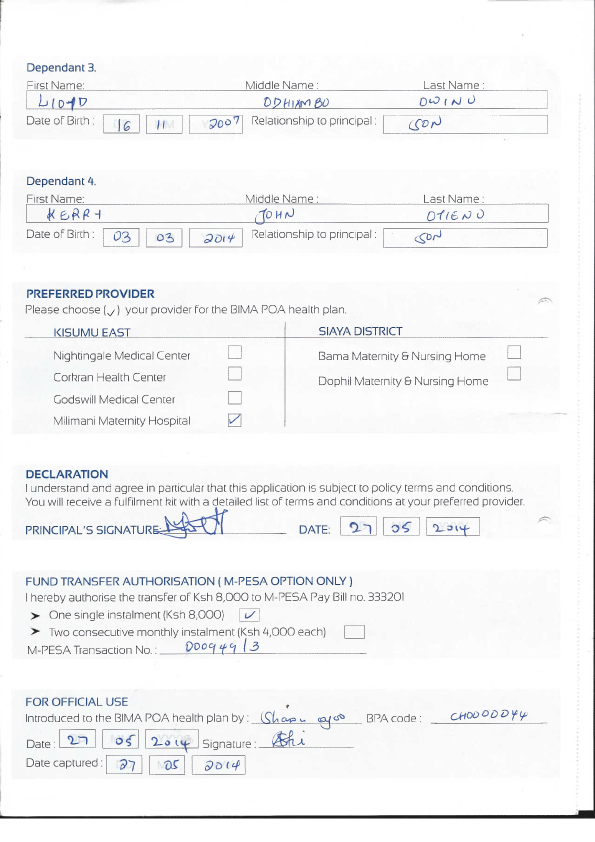 Dependant 3.
First Name: Middle Name : Last Name :
LIOYD ODHIAMBO OWINO
Date of Birth : 16 11 2007 Relationship to principal : SON
Dependant 4.
First Name: Middle Name : Last Name :
KERRY JOHN OTIENO
Date of Birth : 03 03 2014 Relationship to principal : SON
PREFERRED PROVIDER
Please choose (✓) your provider for the BIMA POA health plan.
KISUMU EAST SIAYA DISTRICT
Nightingale Medical Center
Bama Maternity & Nursing Home
Corkran Health Center
Dophil Maternity & Nursing Home
Godswill Medical Center
Milimani Maternity Hospital ✓
DECLARATION
I understand and agree in particular that this application is subject to policy terms and conditions.
You will receive a fulfilment kit with a detailed list of terms and conditions at your preferred provider.
PRINCIPAL'S SIGNATURE: DATE: 27 05 2014
FUND TRANSFER AUTHORISATION ( M-PESA OPTION ONLY )
I hereby authorise the transfer of Ksh 8,000 to M-PESA Pay Bill no. 333201
➤ One single instalment (Ksh 8,000) ✓
➤ Two consecutive monthly instalment (Ksh 4,000 each)
M-PESA Transaction No. : 00094913
FOR OFFICIAL USE
Introduced to the BIMA POA health plan by : BPA code :
Date : 27 05 2014 Signature :
Date captured : 27 05 2014